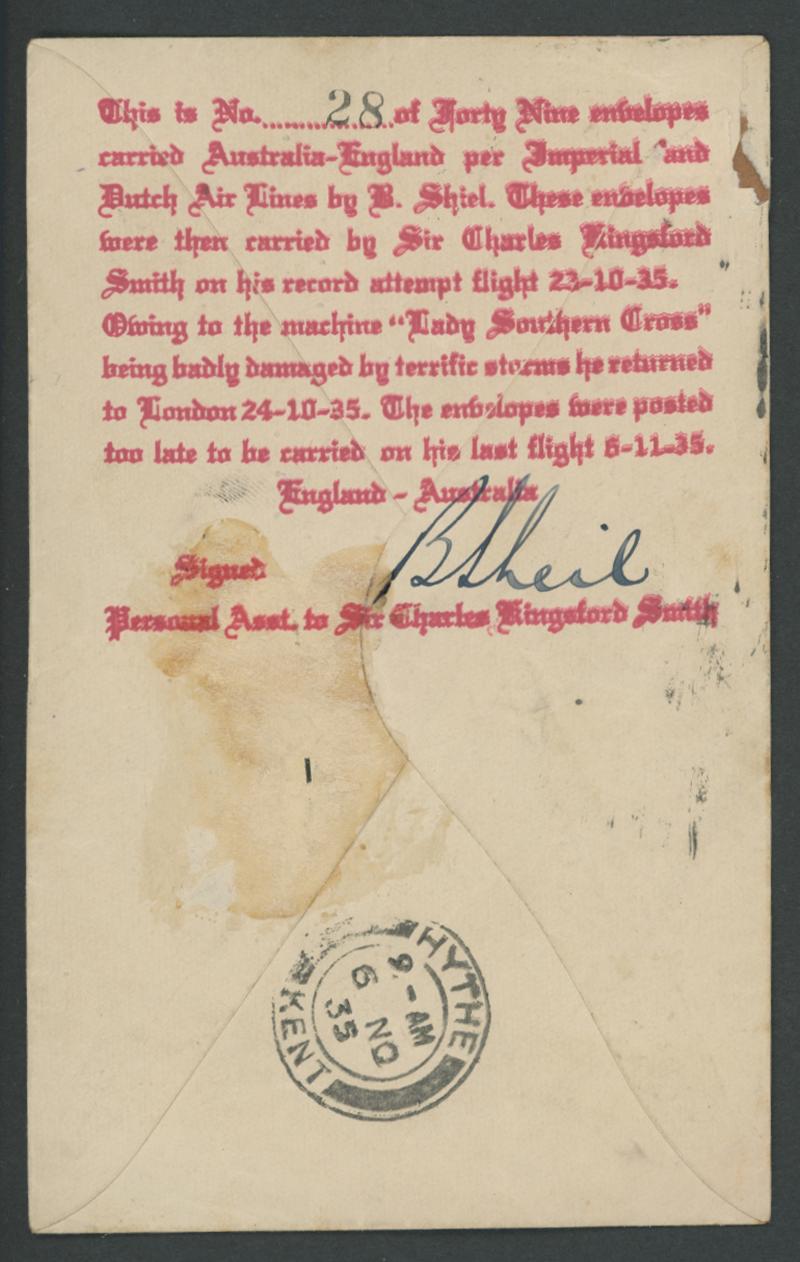 This is No. 28 of Forty Nine envelopes
carried Australia-England per Imperial and
Dutch Air Lines by B. Shiel. These envelopes
were then carried by Sir Charles Kingsford
Smith on his record attempt flight 23-10-35.
Owing to the machine "Lady Southern Cross"
being badly damaged by terrific storms he returned
to London 24-10-35. The envelopes were posted
too late to be carried on his last flight 6-11-35.
England - Australia
Signed B Sheil
Personal Asst. to Sir Charles Kingsford Smith
HYTHE
9 - AM
6 NO
35
KENT